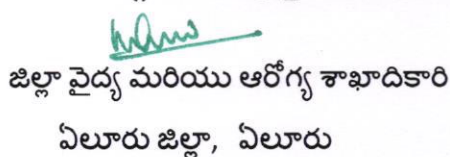 జిల్లా వైద్య మరియు ఆరోగ్య శాఖాదికారి
ఏలూరు జిల్లా, ఏలూరు